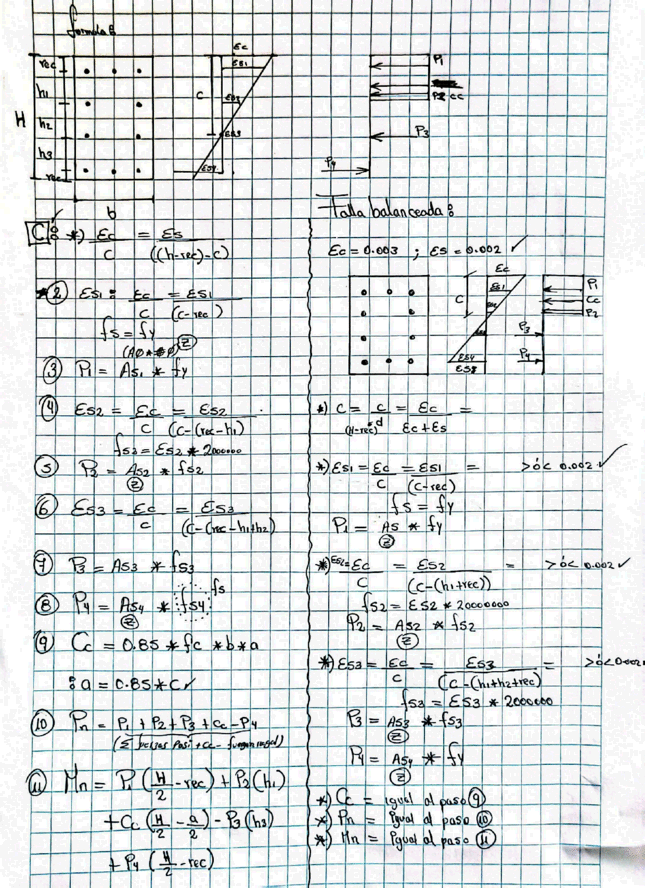 formula B
rec
h1
H
h2
h3
rec
b
Ec
ES1
C
ES2
ES3
ES4
P1
P2 CC
P3
P4
C: *) Ec/C = Es/((h-rec)-c)
*2) ES1: Ec/C = ES1/(C-rec)
fs = fy
3) P1 = As1 * fy
4) ES2 = Ec/C = ES2/(C-(rec-h1)
fs2 = ES2 * 2000000
5) P2 = As2 * fs2
2
6) ES3 = Ec/c = ES3/(C-(rec-h1+h2)
7) P3 = As3 * fs3
8) P4 = As4 * fs4 fs
2
9) Cc = 0.85 * fc * b * a
: a = 0.85 * C
10) Pn = P1 + P2 + P3 + Cc - P4
11) Mn = P1 (H/2 - rec) + P2 (h1)
+ Cc (H/2 - a/2) - P3 (h3)
+ P4 (H/2 - rec)
Falla balanceada:
Ec = 0.003 ; ES = 0.002
Ec
ES1
C
ES4
P1
Cc
P2
P3
P4
*) C = c/(H-rec) d = Ec/(Ec+Es) =
*) ES1 = Ec/C = ES1/(C-rec) = > ó < 0.002
fs = fy
P1 = As * fy
2
*) ES2 = Ec/C = ES2/(C-(h1+rec)) = > ó < 0.002
fs2 = ES2 * 2000000
P2 = As2 * fs2
2
*) ES3 = Ec/c = ES3/(C-(h1+h2+rec) = > ó < 0.002
fs3 = ES3 * 2000000
P3 = As3 * fs3
2
P4 = As4 * fy
2
*) Cc = igual al paso 9
*) Pn = Igual al paso 10
*) Mn = Igual al paso 11